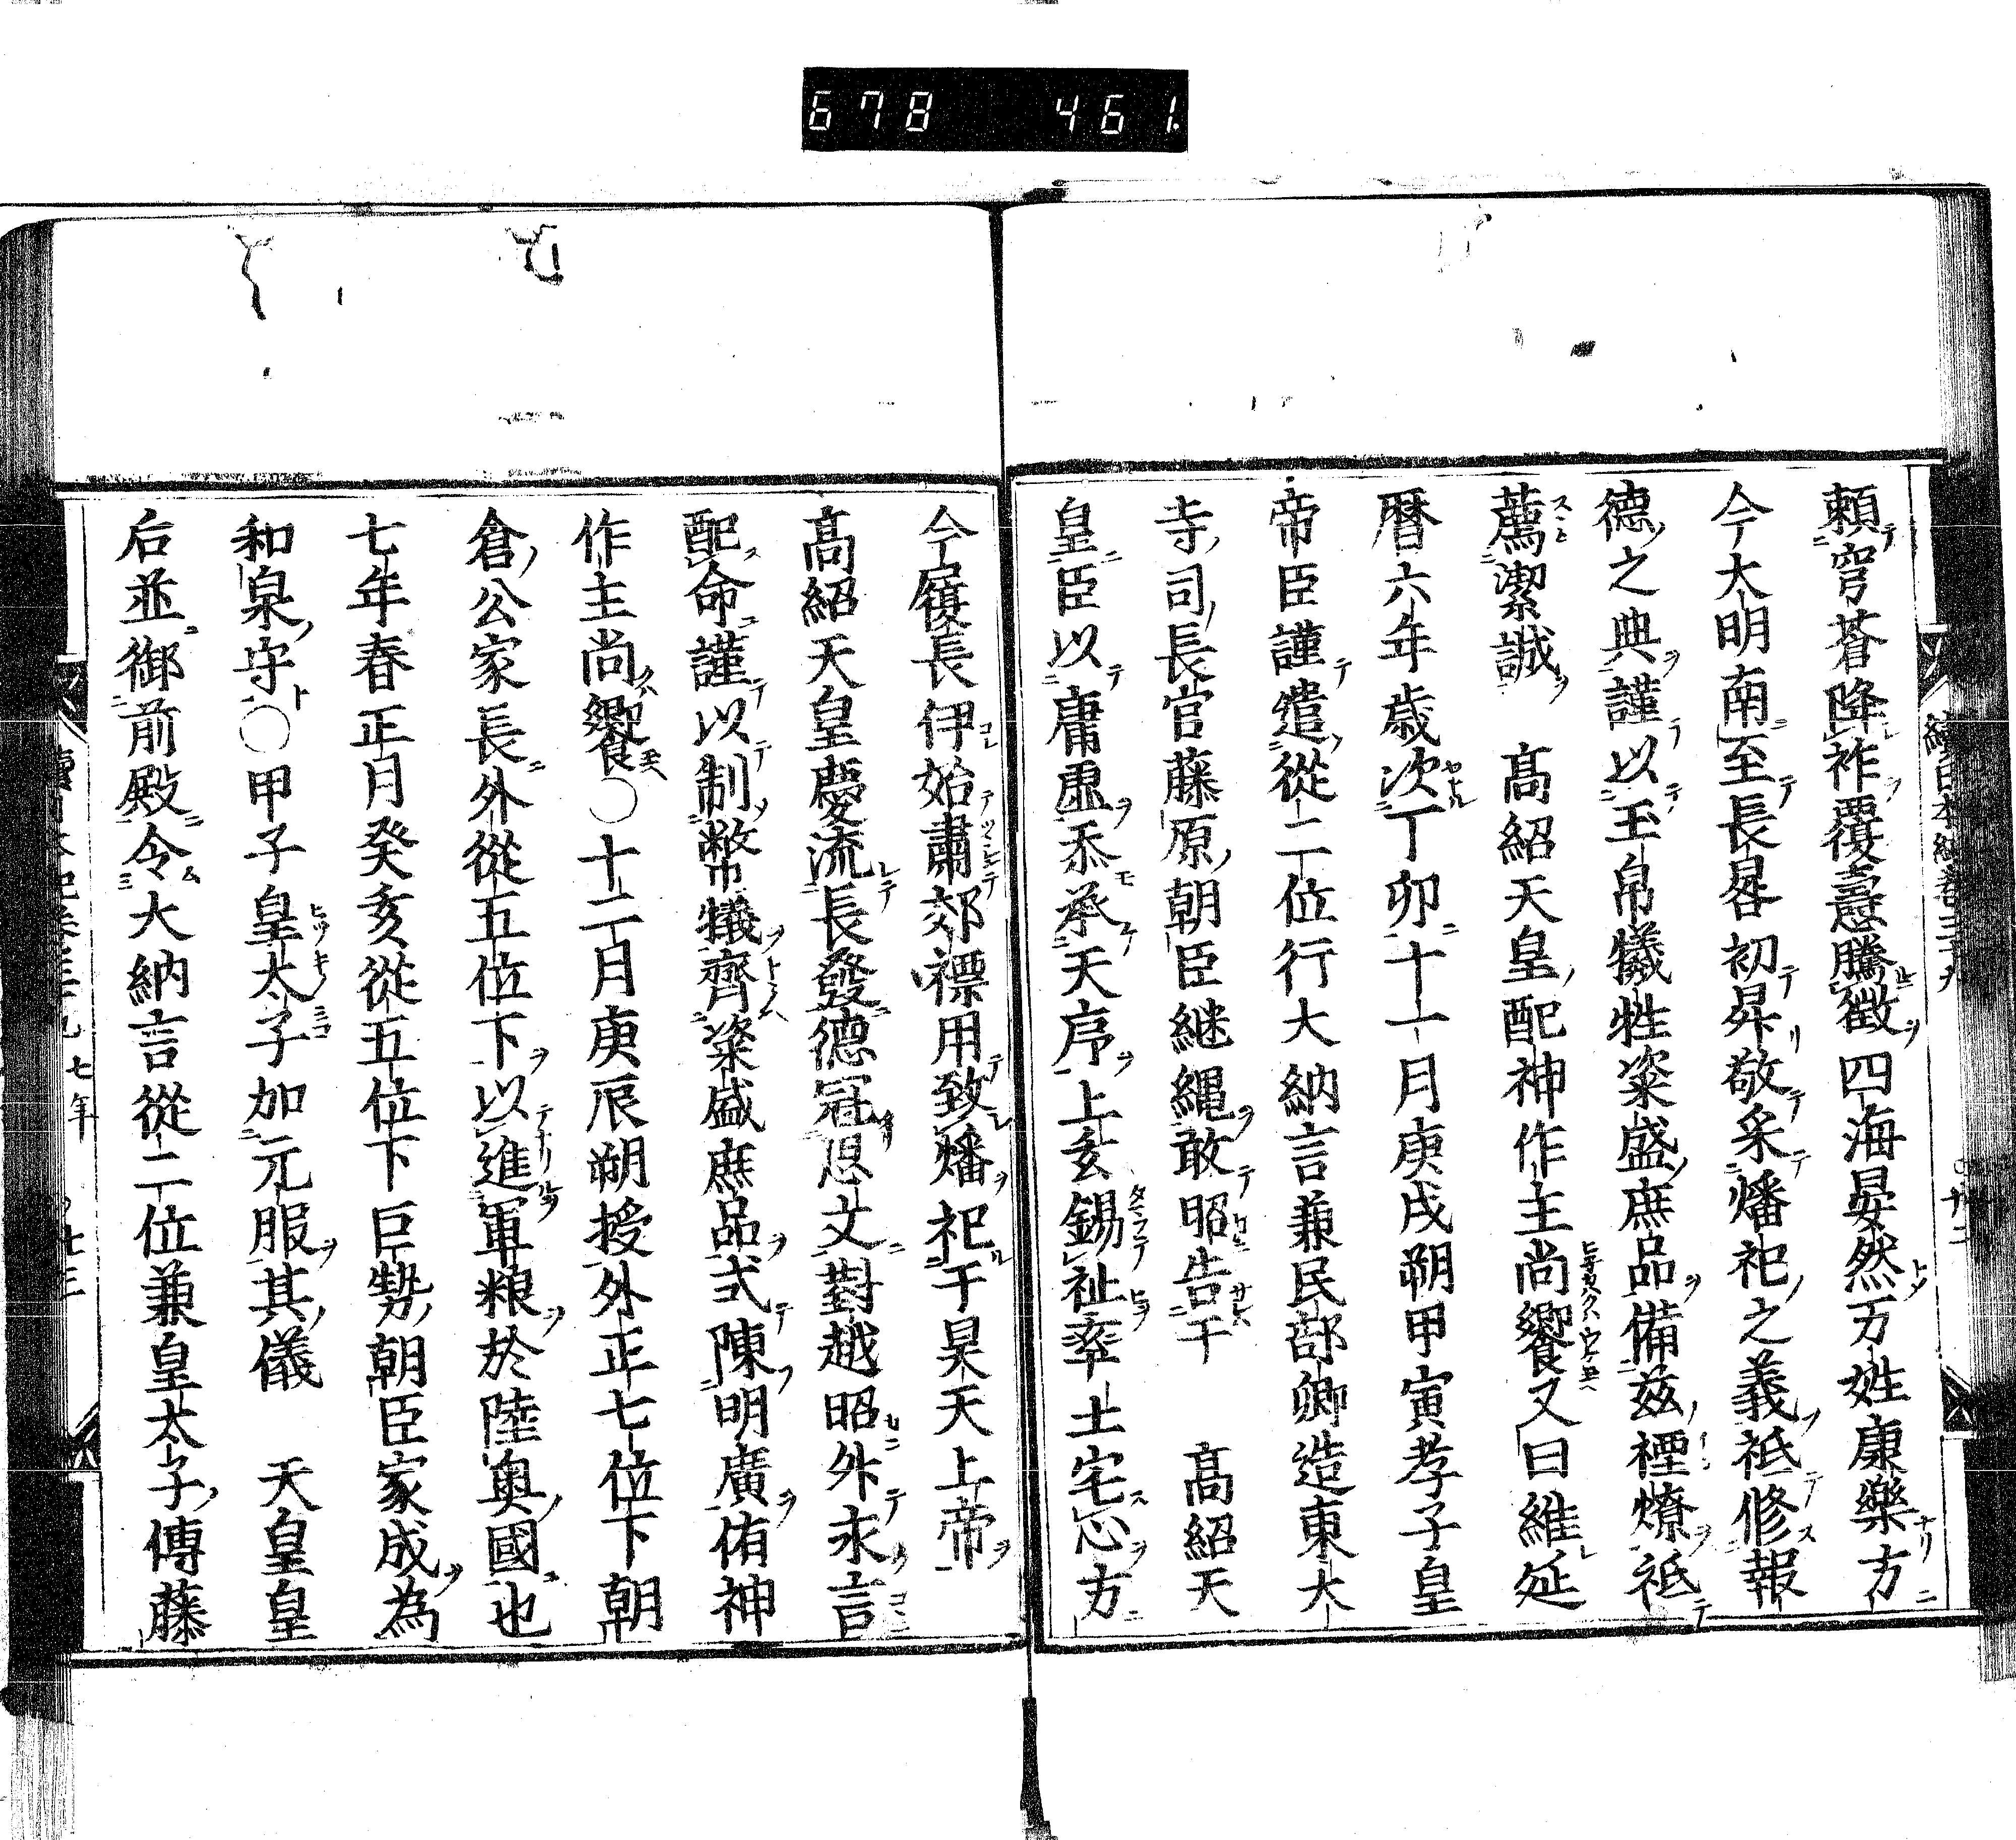 678 461
頼穹蒼降祚覆燾騰徵四海晏然万姓康樂方
今大明南至長晷初昇敬采燔祀之義祗修報
德之典謹以玉帛犧牲粢盛庶品備茲禋燎祗
薦潔誠 髙紹天皇配神作主尚饗又曰維延
暦六年歳次丁卯十一月庚戌朔甲寅孝子皇
帝臣謹遣從二位行大納言兼民部卿造東大
寺司長官藤原朝臣継縄敢昭告于 髙紹天
皇臣以庸虚忝承天序上玄錫祉率土宅心方
今履長伊始肅郊禋用致燔祀于昊天上帝
髙紹天皇慶流長發德冠思文對越昭外永言
配命謹以制幣犠齊粢盛庶品式陳明廣侑神
作主尚饗〇十二月庚辰朔授外正七位下朝
倉公家長外從五位下以進軍粮於陸奥國也
七年春正月癸亥從五位下巨勢朝臣家成為
和泉守〇甲子皇太子加元服其儀 天皇皇
后並御前殿令大納言從二位兼皇太子傳藤